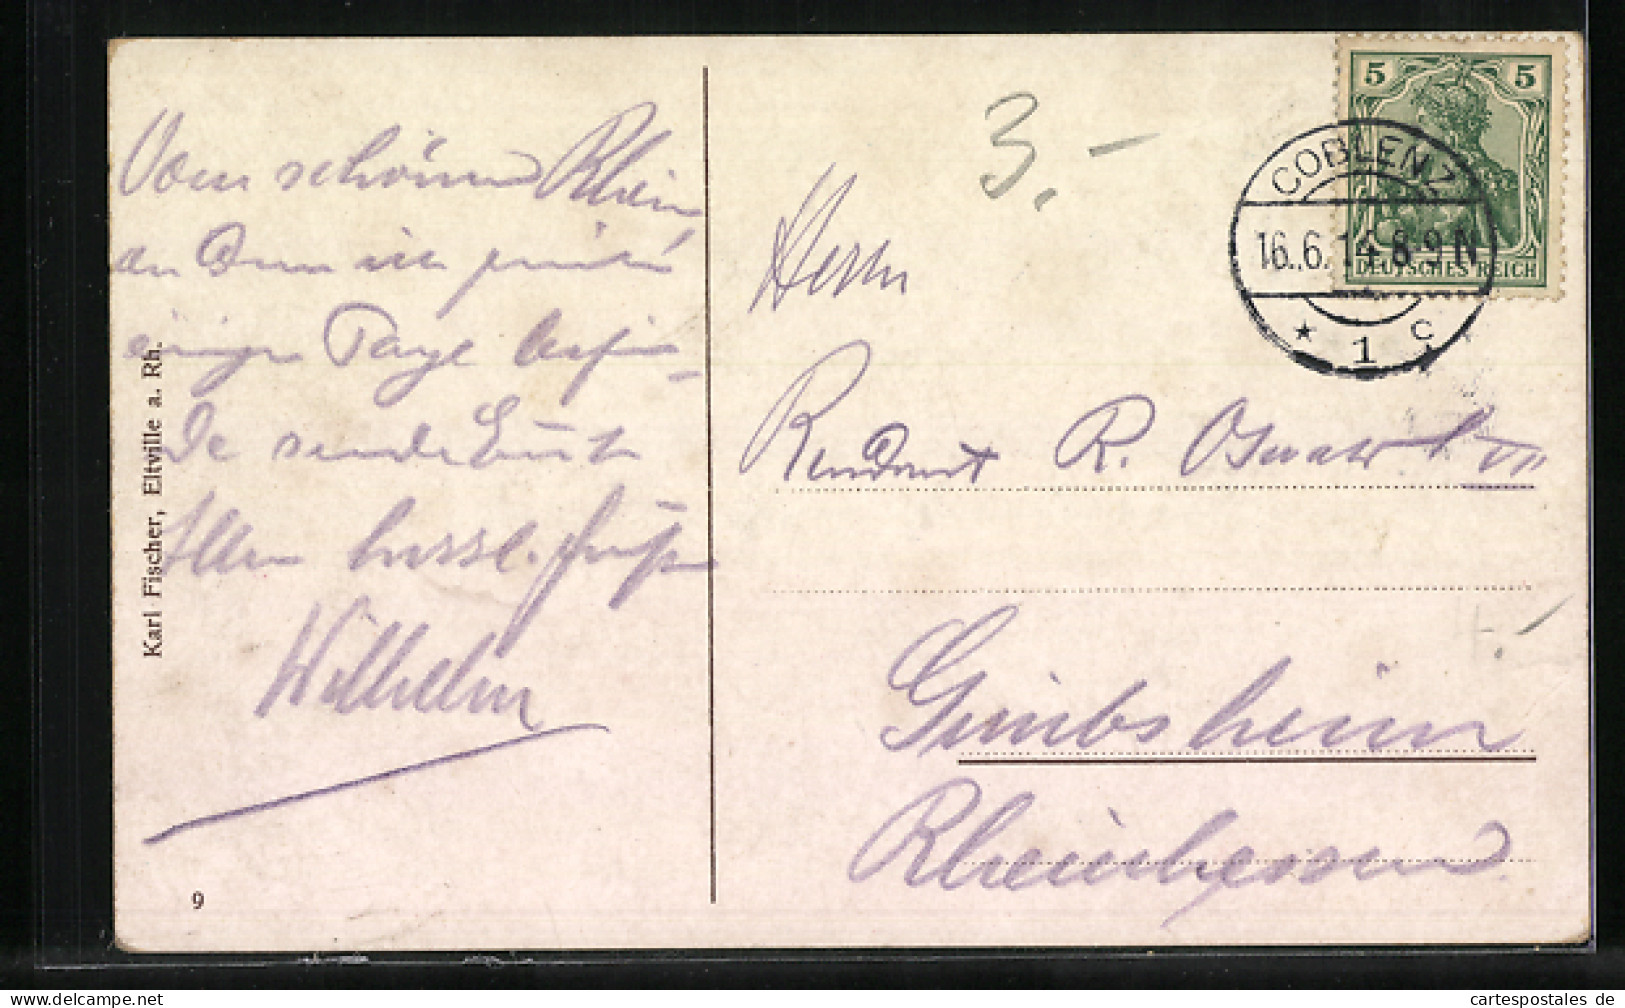 Vom schönen Rhein
an dem ich
einige Tage
sende Euch
Allen herzl. Grüße
Wilhelm
Karl Fischer, Eltville a. Rh.
9
3.-
5 5
DEUTSCHES REICH
COBLENZ
16.6.14.8-9N
* 1 c
Herrn
Rendant R. Oswald VII
Gimbsheim
Rheinhessen
cartespostales de